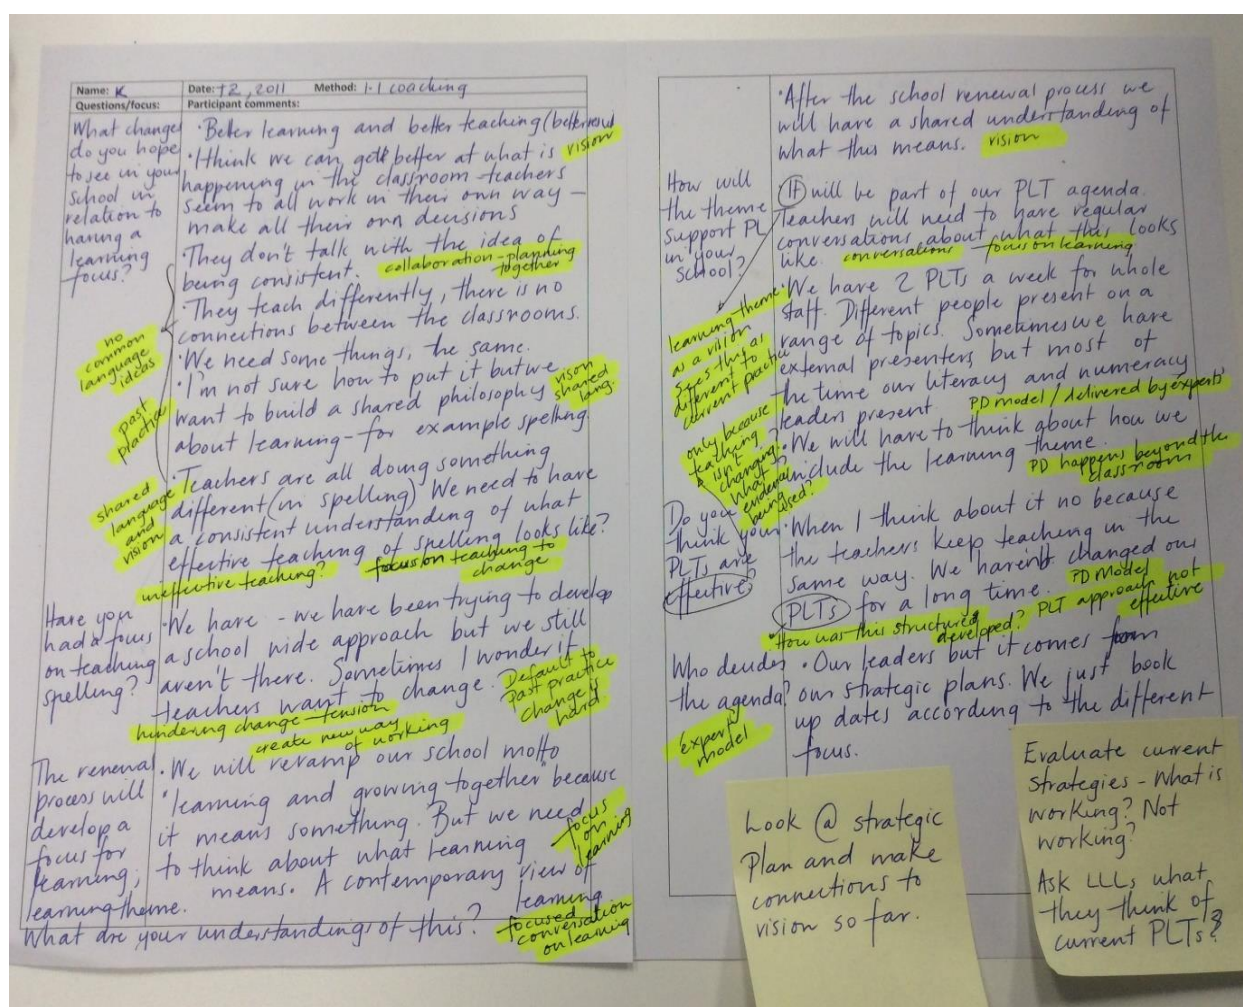 Name: K Date: T2, 2011 Method: 1-1 coaching
Questions/focus: Participant comments:
What changes
do you hope
to see in your
school in
relation to
having a
learning
focus?
• Better learning and better teaching
• I think we can get better at what is
vision
happening in the classroom teachers
seem to all work in their own way –
make all their own decisions
They don't talk with the idea of
being consistent.
collaboration - planning
together
• They teach differently, there is no
connections between the classrooms.
• We need some things, the same.
• I'm not sure how to put it but we
want to build a shared philosophy
vison
shared
lang.
about learning – for example spelling
no
common
language
ideas
past
practice
• Teachers are all doing something
different (in spelling) We need to have
a consistent understanding of what
effective teaching of spelling looks like?
shared
language
and
vision
ineffective teaching?
focus on teaching to
change
Have you
had a focus
on teaching
spelling?
• We have - we have been trying to develop
a school wide approach but we still
aren't there. Sometimes I wonder if
teachers want to change.
Default to
past practice
change is
hard
hindering change - tension
create new way
of working
The renewal
process will
develop a
focus for
learning,
learning theme.
What are your understandings of this?
• We will revamp our school motto
"learning and growing together" because
it means something. But we need
to think about what learning
means. A contemporary view of
learning
focus
on
learning
focused
conversation
on learning
• After the school renewal process we
will have a shared understanding of
what this means.
vision
How will
the theme
support PL
in your
school?
• It will be part of our PLT agenda.
Teachers will need to have regular
conversations about what this looks
like.
conversations
focus on learning
learning theme
as a vision
sees this as
different to
current practice
• We have 2 PLTs a week for whole
staff. Different people present on a
range of topics. Sometimes we have
external presenters, but most of
the time our literacy and numeracy
leaders present
PD model / delivered by experts
• We will have to think about how we
include the learning theme.
PD happens beyond the
classroom
only because
teaching
isn't
changing?
What
being
used?
Do you
think your
PLTs are
effective?
• When I think about it no because
the teachers keep teaching in the
same way. We haven't changed our
PLTs for a long time.
PD Model
PLT approach not
effective
• How was this structure
developed?
Who decides
the agenda?
• Our leaders but it comes from
our strategic plans. We just book
up dates according to the different
focus.
expert
model
Look @ strategic
Plan and make
connections to
vision so far.
Evaluate current
strategies - What is
working? Not
working?
Ask LLLs what
they think of
current PLTs?